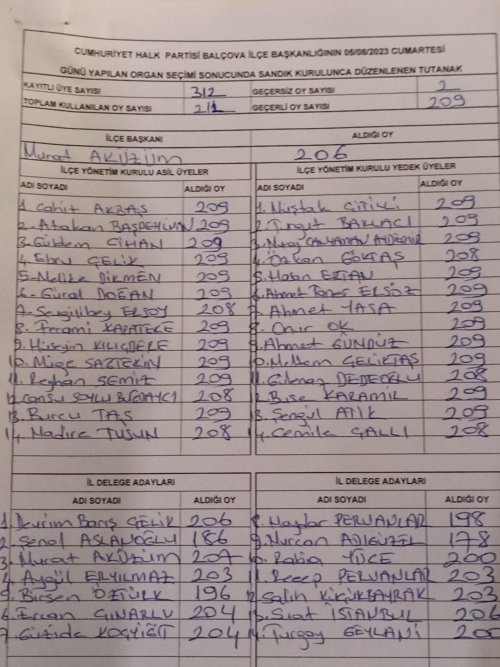 CUMHURİYET HALK PARTİSİ BALÇOVA İLÇE BAŞKANLIĞININ 05/08/2023 CUMARTESİ
GÜNÜ YAPILAN ORGAN SEÇİMİ SONUCUNDA SANDIK KURULUNCA DÜZENLENEN TUTANAK
KAYITLI ÜYE SAYISI 312 GEÇERSİZ OY SAYISI 2
TOPLAM KULLANILAN OY SAYISI 211 GEÇERLİ OY SAYISI 209
İLÇE BAŞKANI ALDIĞI OY
Murat AKÜZÜM 206
İLÇE YÖNETİM KURULU ASİL ÜYELER İLÇE YÖNETİM KURULU YEDEK ÜYELER
ADI SOYADI ALDIĞI OY ADI SOYADI ALDIĞI OY
1. Cahit AKBAŞ 209 1. Müştak 209
2. Atakan 209 2. Turgut BAKLACI 209
3. Güldem CİHAN 209 3. 209
4. Ebru ÇELİK 209 4. Özkan GÖKTAŞ 208
5. Melike DİKMEN 209 5. Hasan ERTAN 209
6. Güral DOĞAN 209 6. Ahmet ERSÖZ 209
7. Sevgilibey ERSOY 208 7. Ahmet YASA 209
8. KARATEKE 209 8. Onur OK 209
9. Hüseyin KILIÇDERE 209 9. Ahmet GÜNDÜZ 209
10. Müge SAZTEKİN 209 10. Meltem ÇELİKTAŞ 209
11. Reyhan SEMİZ 209 11. Gülenaz DEDEOĞLU 208
12. Cansu SOYLU BUĞDAYCI 208 12. Buse KARAMIL 209
13. Burcu TAŞ 209 13. Şengül ATİK 209
14. Nadire TUSUN 208 14. Cemile ÇALLI 208
İL DELEGE ADAYLARI İL DELEGE ADAYLARI
ADI SOYADI ALDIĞI OY ADI SOYADI ALDIĞI OY
1. Devrim Barış ÇELİK 206 8. Haydar PERVANLAR 198
2. Şenol ASLANOĞLU 186 9. Nurcan ADIGÜZEL 178
3. Murat AKÜZÜM 207 10. Rabia YÜCE 200
4. Aygül ERYILMAZ 203 11. Recep PERVANLAR 203
5. Birsen ÖZTÜRK 196 12. Salih KÜÇÜKBAYRAK 203
6. Ercan ÇINARLU 204 13. Suat İSTANBUL 206
7. Güzide KOÇYİĞİT 204 14. Turgay GEYLANİ